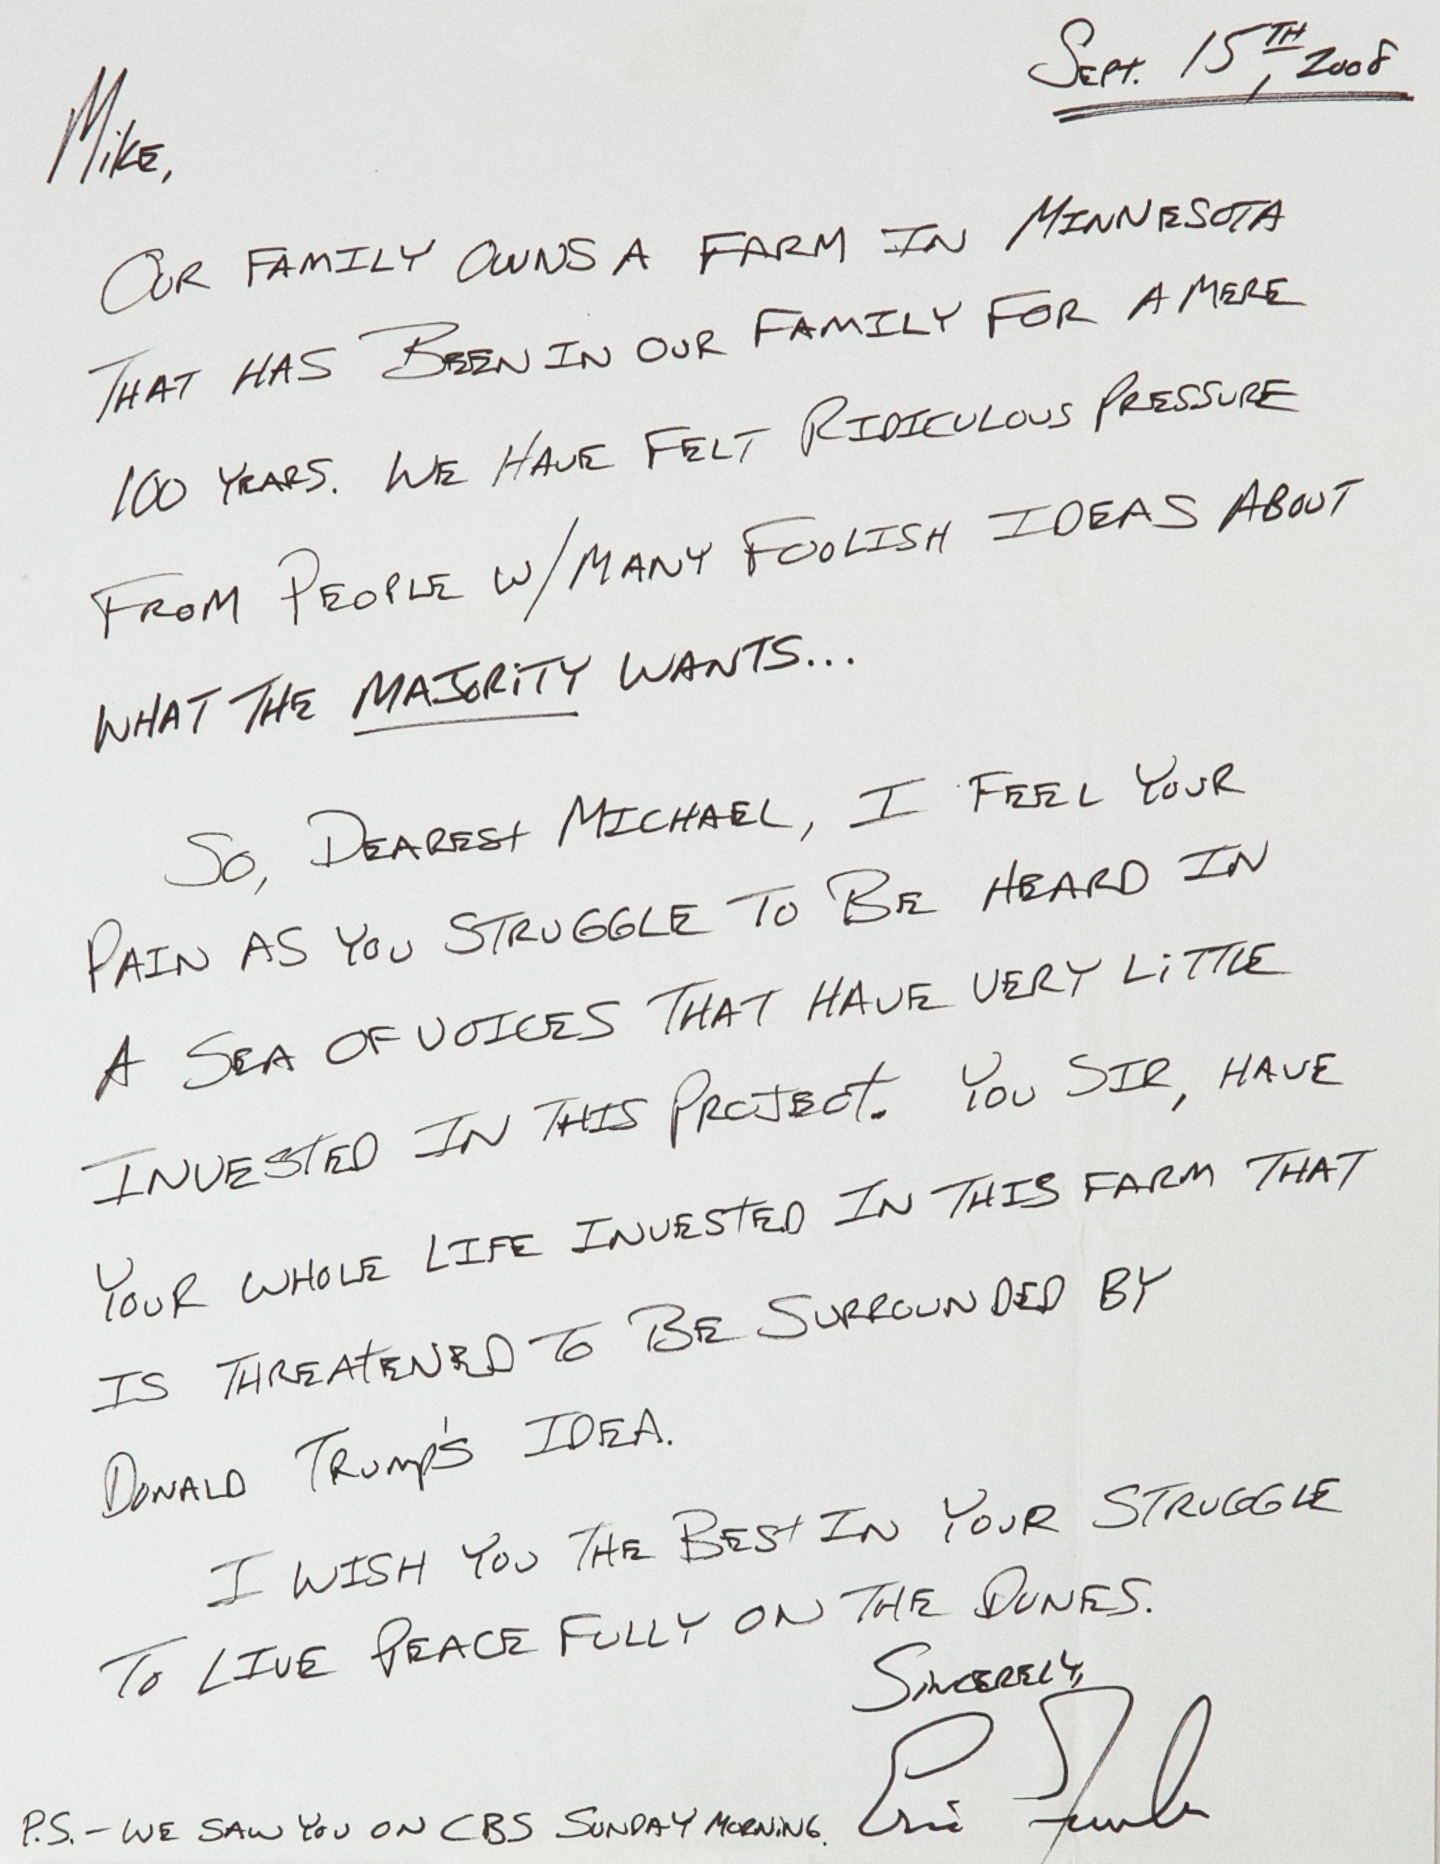 Sept. 15TH, 2008
Mike,
OUR FAMILY OWNS A FARM IN MINNESOTA
THAT HAS BEEN IN OUR FAMILY FOR A MERE
100 YEARS. WE HAVE FELT RIDICULOUS PRESSURE
FROM PEOPLE W/MANY FOOLISH IDEAS ABOUT
WHAT THE MAJORITY WANTS...
SO, DEAREST MICHAEL, I FEEL YOUR
PAIN AS YOU STRUGGLE TO BE HEARD IN
A SEA OF VOICES THAT HAVE VERY LITTLE
INVESTED IN THIS PROJECT. YOU SIR, HAVE
YOUR WHOLE LIFE INVESTED IN THIS FARM THAT
IS THREATENED TO BE SURROUNDED BY
DONALD TRUMP'S IDEA.
I WISH YOU THE BEST IN YOUR STRUGGLE
TO LIVE PEACEFULLY ON THE DUNES.
SINCERELY,
Eric
P.S. - WE SAW YOU ON CBS SUNDAY MORNING.